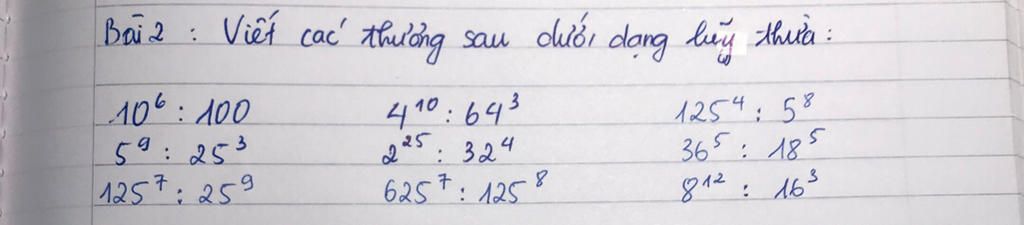 Bài 2 : Viết các thương sau dưới dạng lũy thừa :
10⁶ : 100 4¹⁰ : 64³ 125⁴ : 5⁸
5⁹ : 25³ 2²⁵ : 32⁴ 36⁵ : 18⁵
125⁷ : 25⁹ 625⁷ : 125⁸ 8¹² : 16³